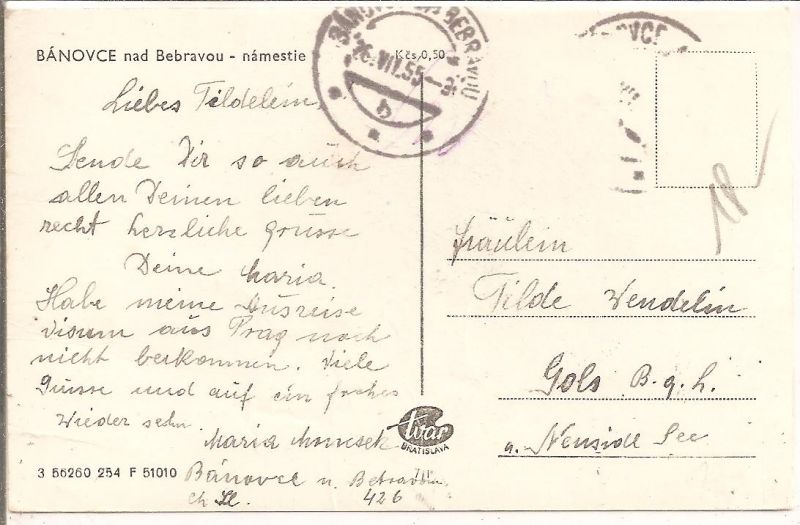 BÁNOVCE nad Bebravou - námestie
Kčs 0,50
BÁNOVCE BEBRAVOU
26.VII.55
b
OVCE
18
Liebes Tildelein,
Sende Dir so auch
allen Deinen lieben
recht herzliche Grüsse
Deine Maria.
Habe meine Ausreise
visum aus Prag noch
nicht bekommen. Viele
Grüsse und auf ein frohes
Wieder sehn.
Maria
Bánovce n. Bebravou
426
Fräulein
Tilde Wendelin
Gols B.g.l.
a. Neuside See
tvar
BRATISLAVA
3 56260 254 F 51010